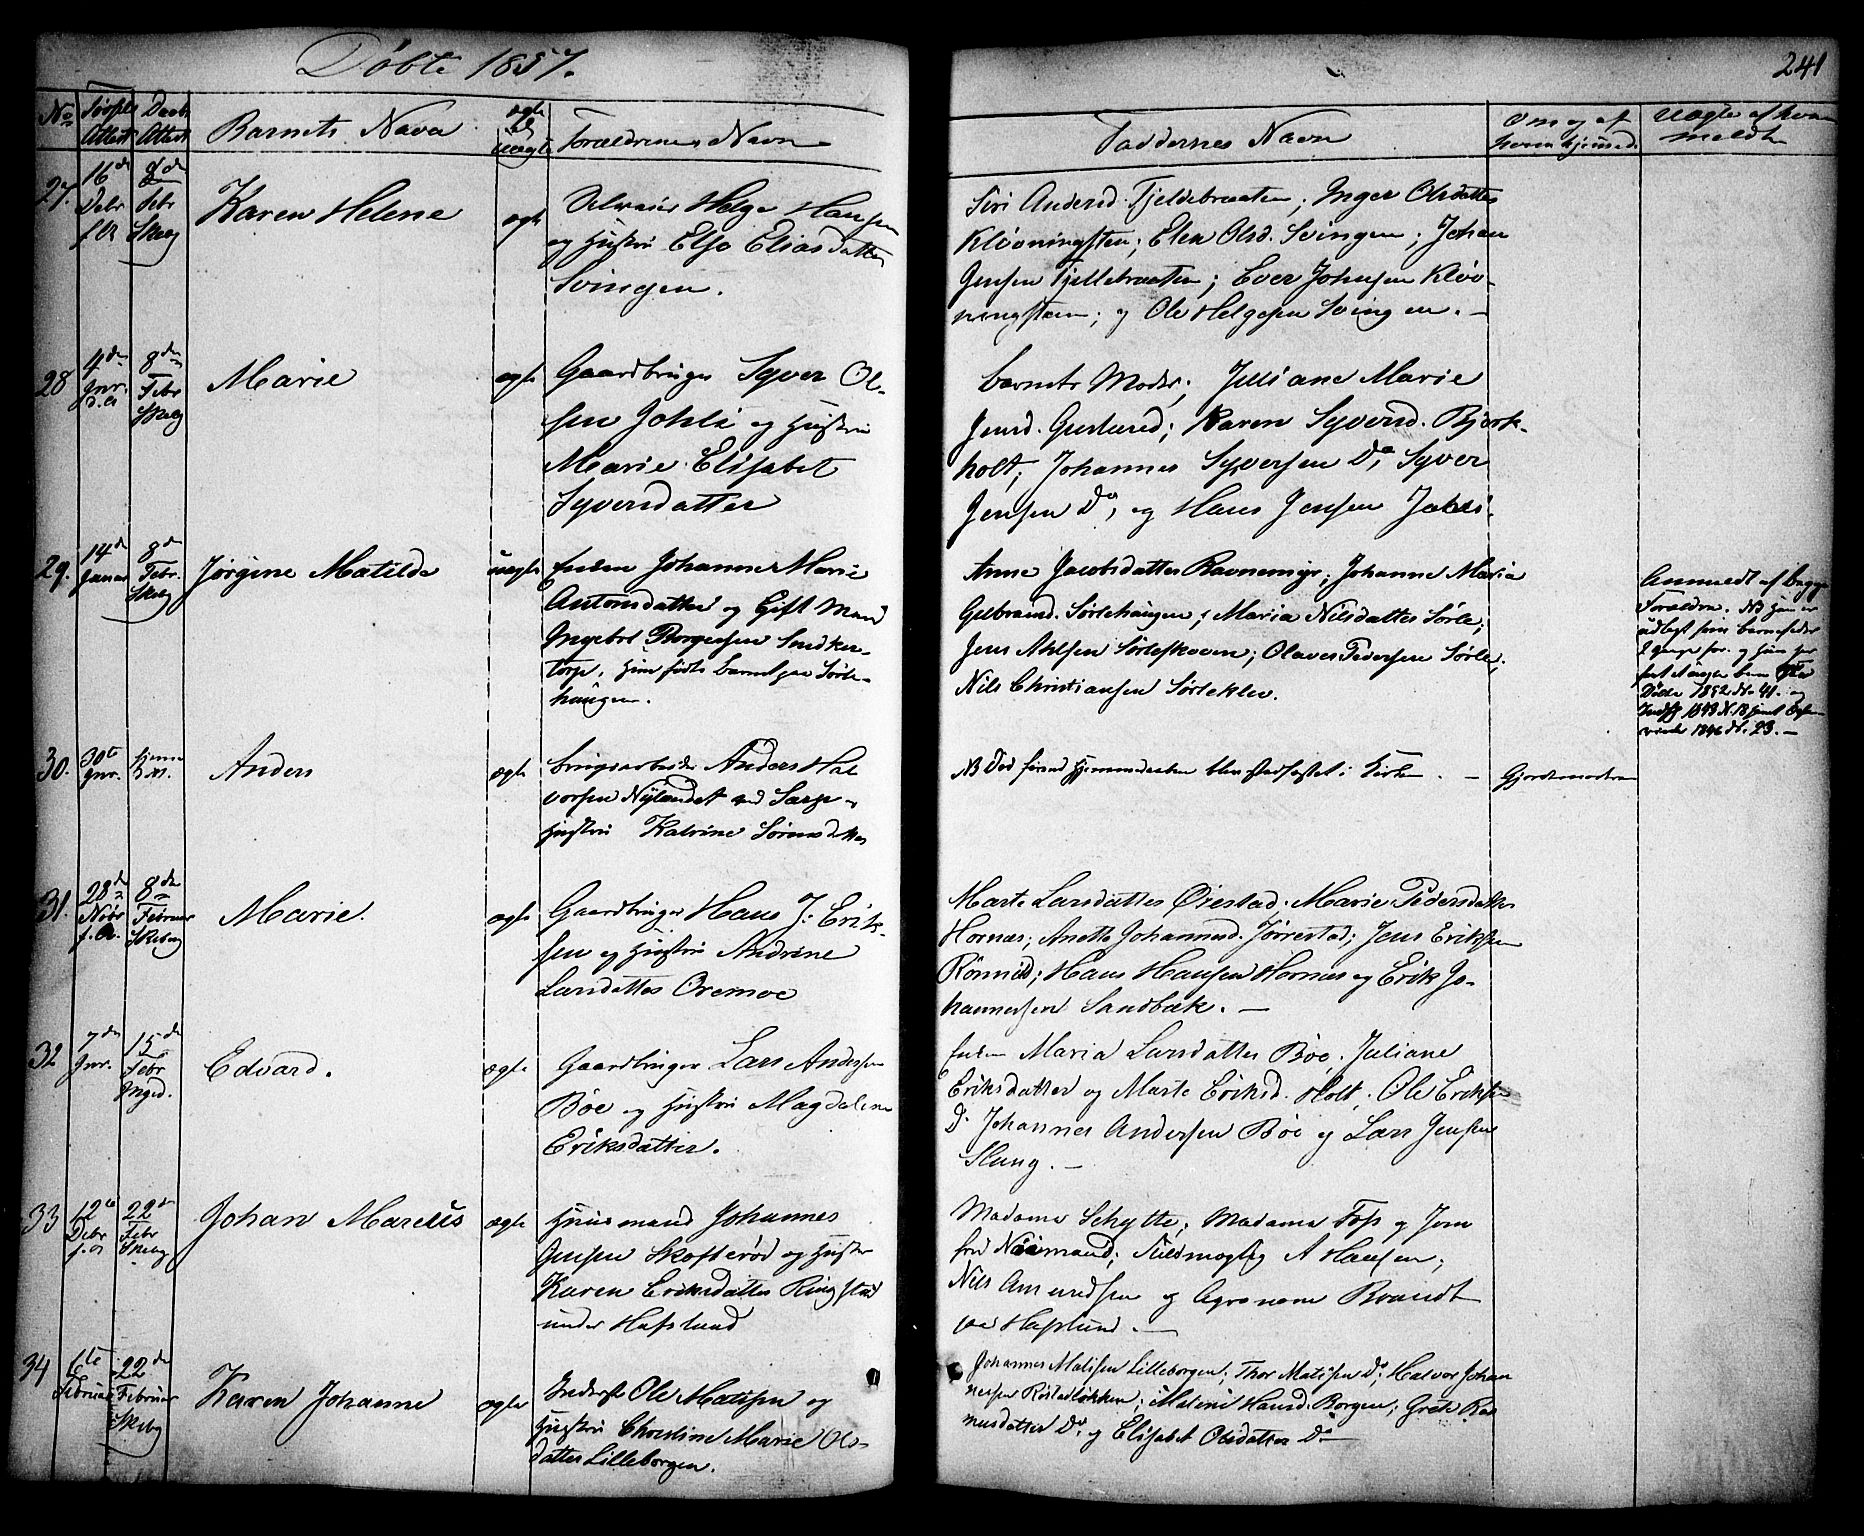 Döbte 1857.
241
No
Attest
Daabs
Attest
Barnets Navn
ægte
uægte
Forældrenes Navn
Faddernes Navn
Om og af
hvem hjemmed.
Uægte af hvem
meldt
27.
16de
Debr
f. A
8de
Febr
Skbg
Karen Helene
ægte
Helge Hansen
og Hustru Else Eliasdatter
Svingen.
Siri Andersd. Fjeldebraaten; Inger Olsdatter
Klövningsten; Elen Olsd. Svingen; Johan
Jensen Fjellebraaten; Ever Johnsen Klöv-
ningsten; og Ole Helgesen Svingen.
28
4de
Jnr.
d. A
8de
Febr
Skbg
Marie
ægte
Gaardbruger Syver Ol-
sen Johli og Hustru
Marie Elisabet
Syversdatter
Barnets Moder; Julliane Marie
Jensd. Guslund; Karen Syversd. Björk-
holt; Johannes Syversen Do; Syver
Jensen Do, og Hans Jensen
29.
14de
Januar
8de
Febr.
Skbg
Jörgine Matilde
uægte
Johanne Marie
Antonsdatter og Gift Mand
Ingebret Borgersen Sendker-
torp. Hun födte Barnet paa Sörle-
haugen.
Anne Jacobsdatter Ravnemyr; Johanne Maria
Gulbrand. Sörlehaugen; Maria Nilsdatter Sörle;
Jens Ahlsen Sörleskoven; Olaves Pedersen Sörle;
Nils Christiansen Sörleklev.
Anmeldt af begge
Forældre. NB Han er
udlagt som barnefader
2 gange för. og hun har
Döbte 1852 No 41. og
1846 No. 23.
30.
30te
Jnr.
hjemme
Anders
ægte
Brugsarbeider Anders Hal
vorsen Nylandet ved Sarp
Hustru Katrine Sörensdatter
NB Död förend Hjemmedaaben blev stadfæstet i Kirken.
Gjordemoderen
31.
28de
Nobr
f. A.
8de
Februar
Skebg
Marie.
ægte
Gaardbruger Hans J. Erik-
sen og Hustru Andrine
Larsdatter Oremoe
Marte Larsdatter Örestad. Marie Pedersdatter
Hornæs; Anette Johannesd. Jörrestad; Jens Eriksen
Rönnid; Hans Hansen Hornæs og Erik Jo-
hannessen Sandbæk.
32
7de
Jnr.
15de
Febr
Inged.
Edvard.
ægte
Gaardbruger Lars Andersen
Böe og Hustru Magdalene
Eriksdatter.
Maria Larsdatter Böe. Juliane
Eriksdatter og Marte Eriksd. Holt; Ole Eriksen
Do. Johannes Andersen Böe og Lars Jensen
Slang.
33
12te
Debr
f. A
22de
Febr
Skebg
Johan Marcus
ægte
Huusmand Johannes
Jensen Skofteröd og Hustru
Karen Eriksdatter Ringstad
under Hafslund
Madame Schytte; Madame Foss og Jom
fru Naumand; Fuldmægtig A Hansen;
Nils Amundsen og Agronom Brandt
paa Hafslund.
34
6te
Februar
22de
Februar
Skebg
Karen Johanne
ægte
Inderst Ole Matisen og
Hustru Christine Marie Ols-
datter Lilleborgen.
Johannes Matisen Lilleborgen; Thor Matisen Do; Halvor Johan
nessen Röstadlökken; Matinie Hansd. Borgen; Grete Ras
musdatter Do. og Elisabet Olsdatter Do